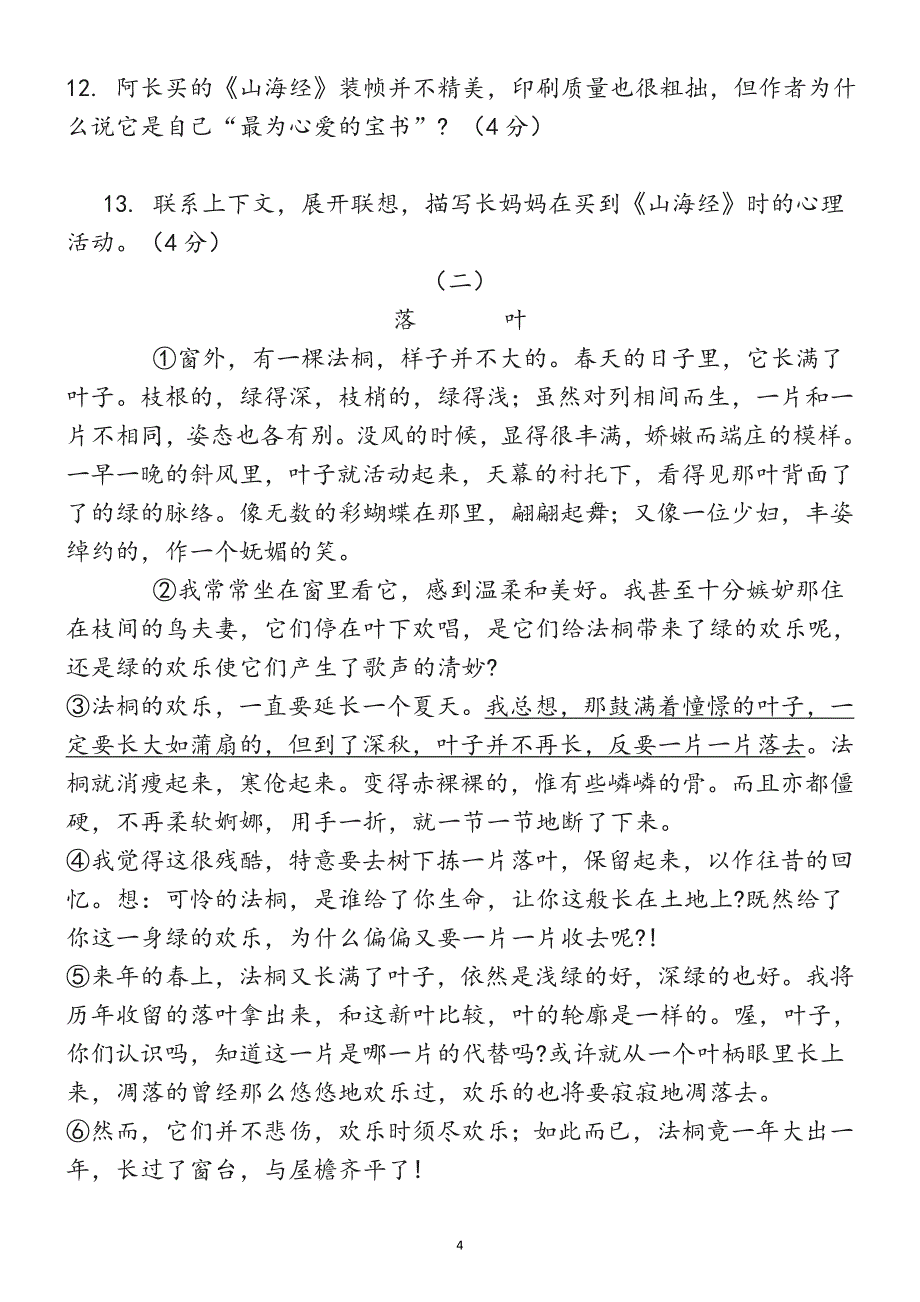 12. 阿长买的《山海经》装帧并不精美，印刷质量也很粗拙，但作者为什
么说它是自己“最为心爱的宝书”? （4分）
13. 联系上下文，展开联想，描写长妈妈在买到《山海经》时的心理
活动。（4分）
（二）
落 叶
①窗外，有一棵法桐，样子并不大的。春天的日子里，它长满了
叶子。枝根的，绿得深，枝梢的，绿得浅；虽然对列相间而生，一片和一
片不相同，姿态也各有别。没风的时候，显得很丰满，娇嫩而端庄的模样。
一早一晚的斜风里，叶子就活动起来，天幕的衬托下，看得见那叶背面了
了的绿的脉络。像无数的彩蝴蝶在那里，翩翩起舞；又像一位少妇，丰姿
绰约的，作一个妩媚的笑。
②我常常坐在窗里看它，感到温柔和美好。我甚至十分嫉妒那住
在枝间的鸟夫妻，它们停在叶下欢唱，是它们给法桐带来了绿的欢乐呢，
还是绿的欢乐使它们产生了歌声的清妙?
③法桐的欢乐，一直要延长一个夏天。我总想，那鼓满着憧憬的叶子，一
定要长大如蒲扇的，但到了深秋，叶子并不再长，反要一片一片落去。法
桐就消瘦起来，寒伧起来。变得赤裸裸的，惟有些嶙嶙的骨。而且亦都僵
硬，不再柔软婀娜，用手一折，就一节一节地断了下来。
④我觉得这很残酷，特意要去树下拣一片落叶，保留起来，以作往昔的回
忆。想：可怜的法桐，是谁给了你生命，让你这般长在土地上?既然给了
你这一身绿的欢乐，为什么偏偏又要一片一片收去呢?!
⑤来年的春上，法桐又长满了叶子，依然是浅绿的好，深绿的也好。我将
历年收留的落叶拿出来，和这新叶比较，叶的轮廓是一样的。喔，叶子，
你们认识吗，知道这一片是哪一片的代替吗?或许就从一个叶柄眼里长上
来，凋落的曾经那么悠悠地欢乐过，欢乐的也将要寂寂地凋落去。
⑥然而，它们并不悲伤，欢乐时须尽欢乐；如此而已，法桐竟一年大出一
年，长过了窗台，与屋檐齐平了!
4